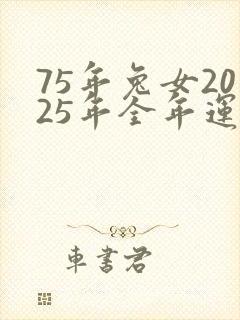 75年兔女20
25年全年運
車書君